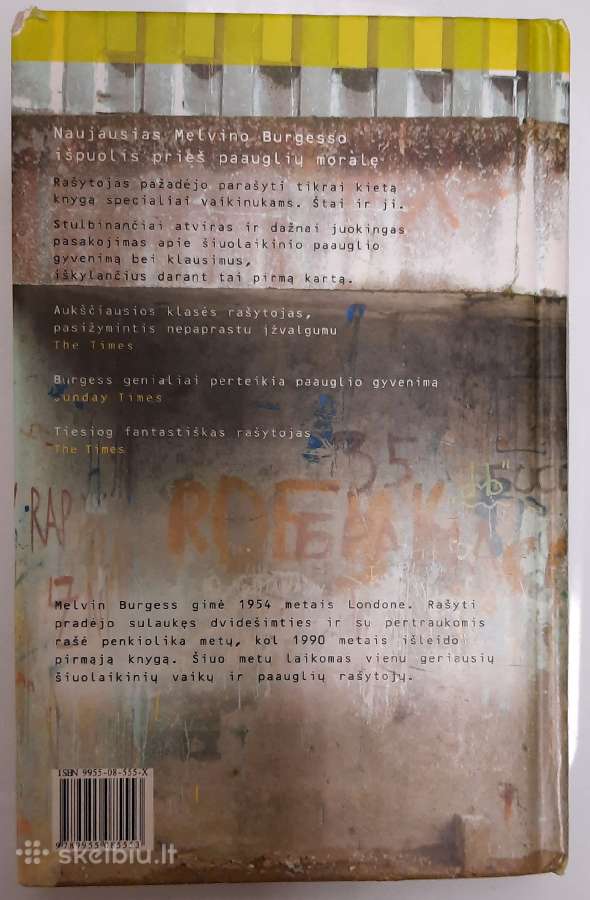 Naujausias Melvino Burgesso
išpuolis prieš paauglių moralę
Rašytojas pažadėjo parašyti tikrai kietą
knygą specialiai vaikinukams. Štai ir ji.
Stulbinančiai atviras ir dažnai juokingas
pasakojimas apie šiuolaikinio paauglio
gyvenimą bei klausimus,
iškylančius darant tai pirmą kartą.
Aukščiausios klasės rašytojas,
pasižymintis nepaprastu įžvalgumu
The Times
Burgess genialiai perteikia paauglio gyvenimą
Sunday Times
Tiesiog fantastiškas rašytojas
The Times
35
RAP
17
Melvin Burgess gimė 1954 metais Londone. Rašyti
pradėjo sulaukęs dvidešimties ir su pertraukomis
rašė penkiolika metų, kol 1990 metais išleido
pirmąją knygą. Šiuo metu laikomas vienu geriausių
šiuolaikinių vaikų ir paauglių rašytojų.
ISBN 9955-08-555-X
skelbiu.lt